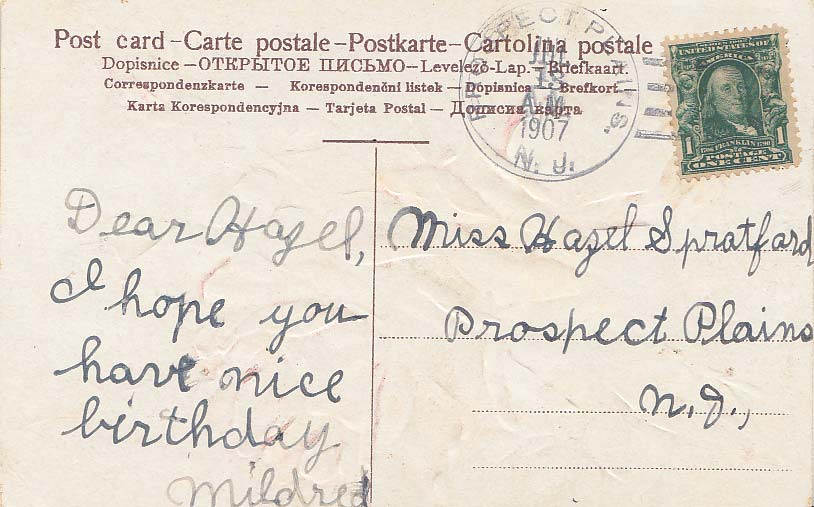 Post card – Carte postale – Postkarte – Cartolina postale
Dopisnice – ОТКРЫТОЕ ПИСЬМО – Levelező-Lap. – Briefkaart.
Correspondenzkarte – Korespondenčni listek – Dopisnica – Brefkort –
Karta Korespondencyjna – Tarjeta Postal – Дописна карта
PROSPECT PLAINS.
JUL
13
A.M.
1907
N. J.
UNITED STATES OF
AMERICA
1 FRANKLIN 1
POSTAGE
ONE CENT
Dear Hazel,
I hope you
have nice
birthday
Mildred
Miss Hazel Spratfard
Prospect Plains
N.J.,